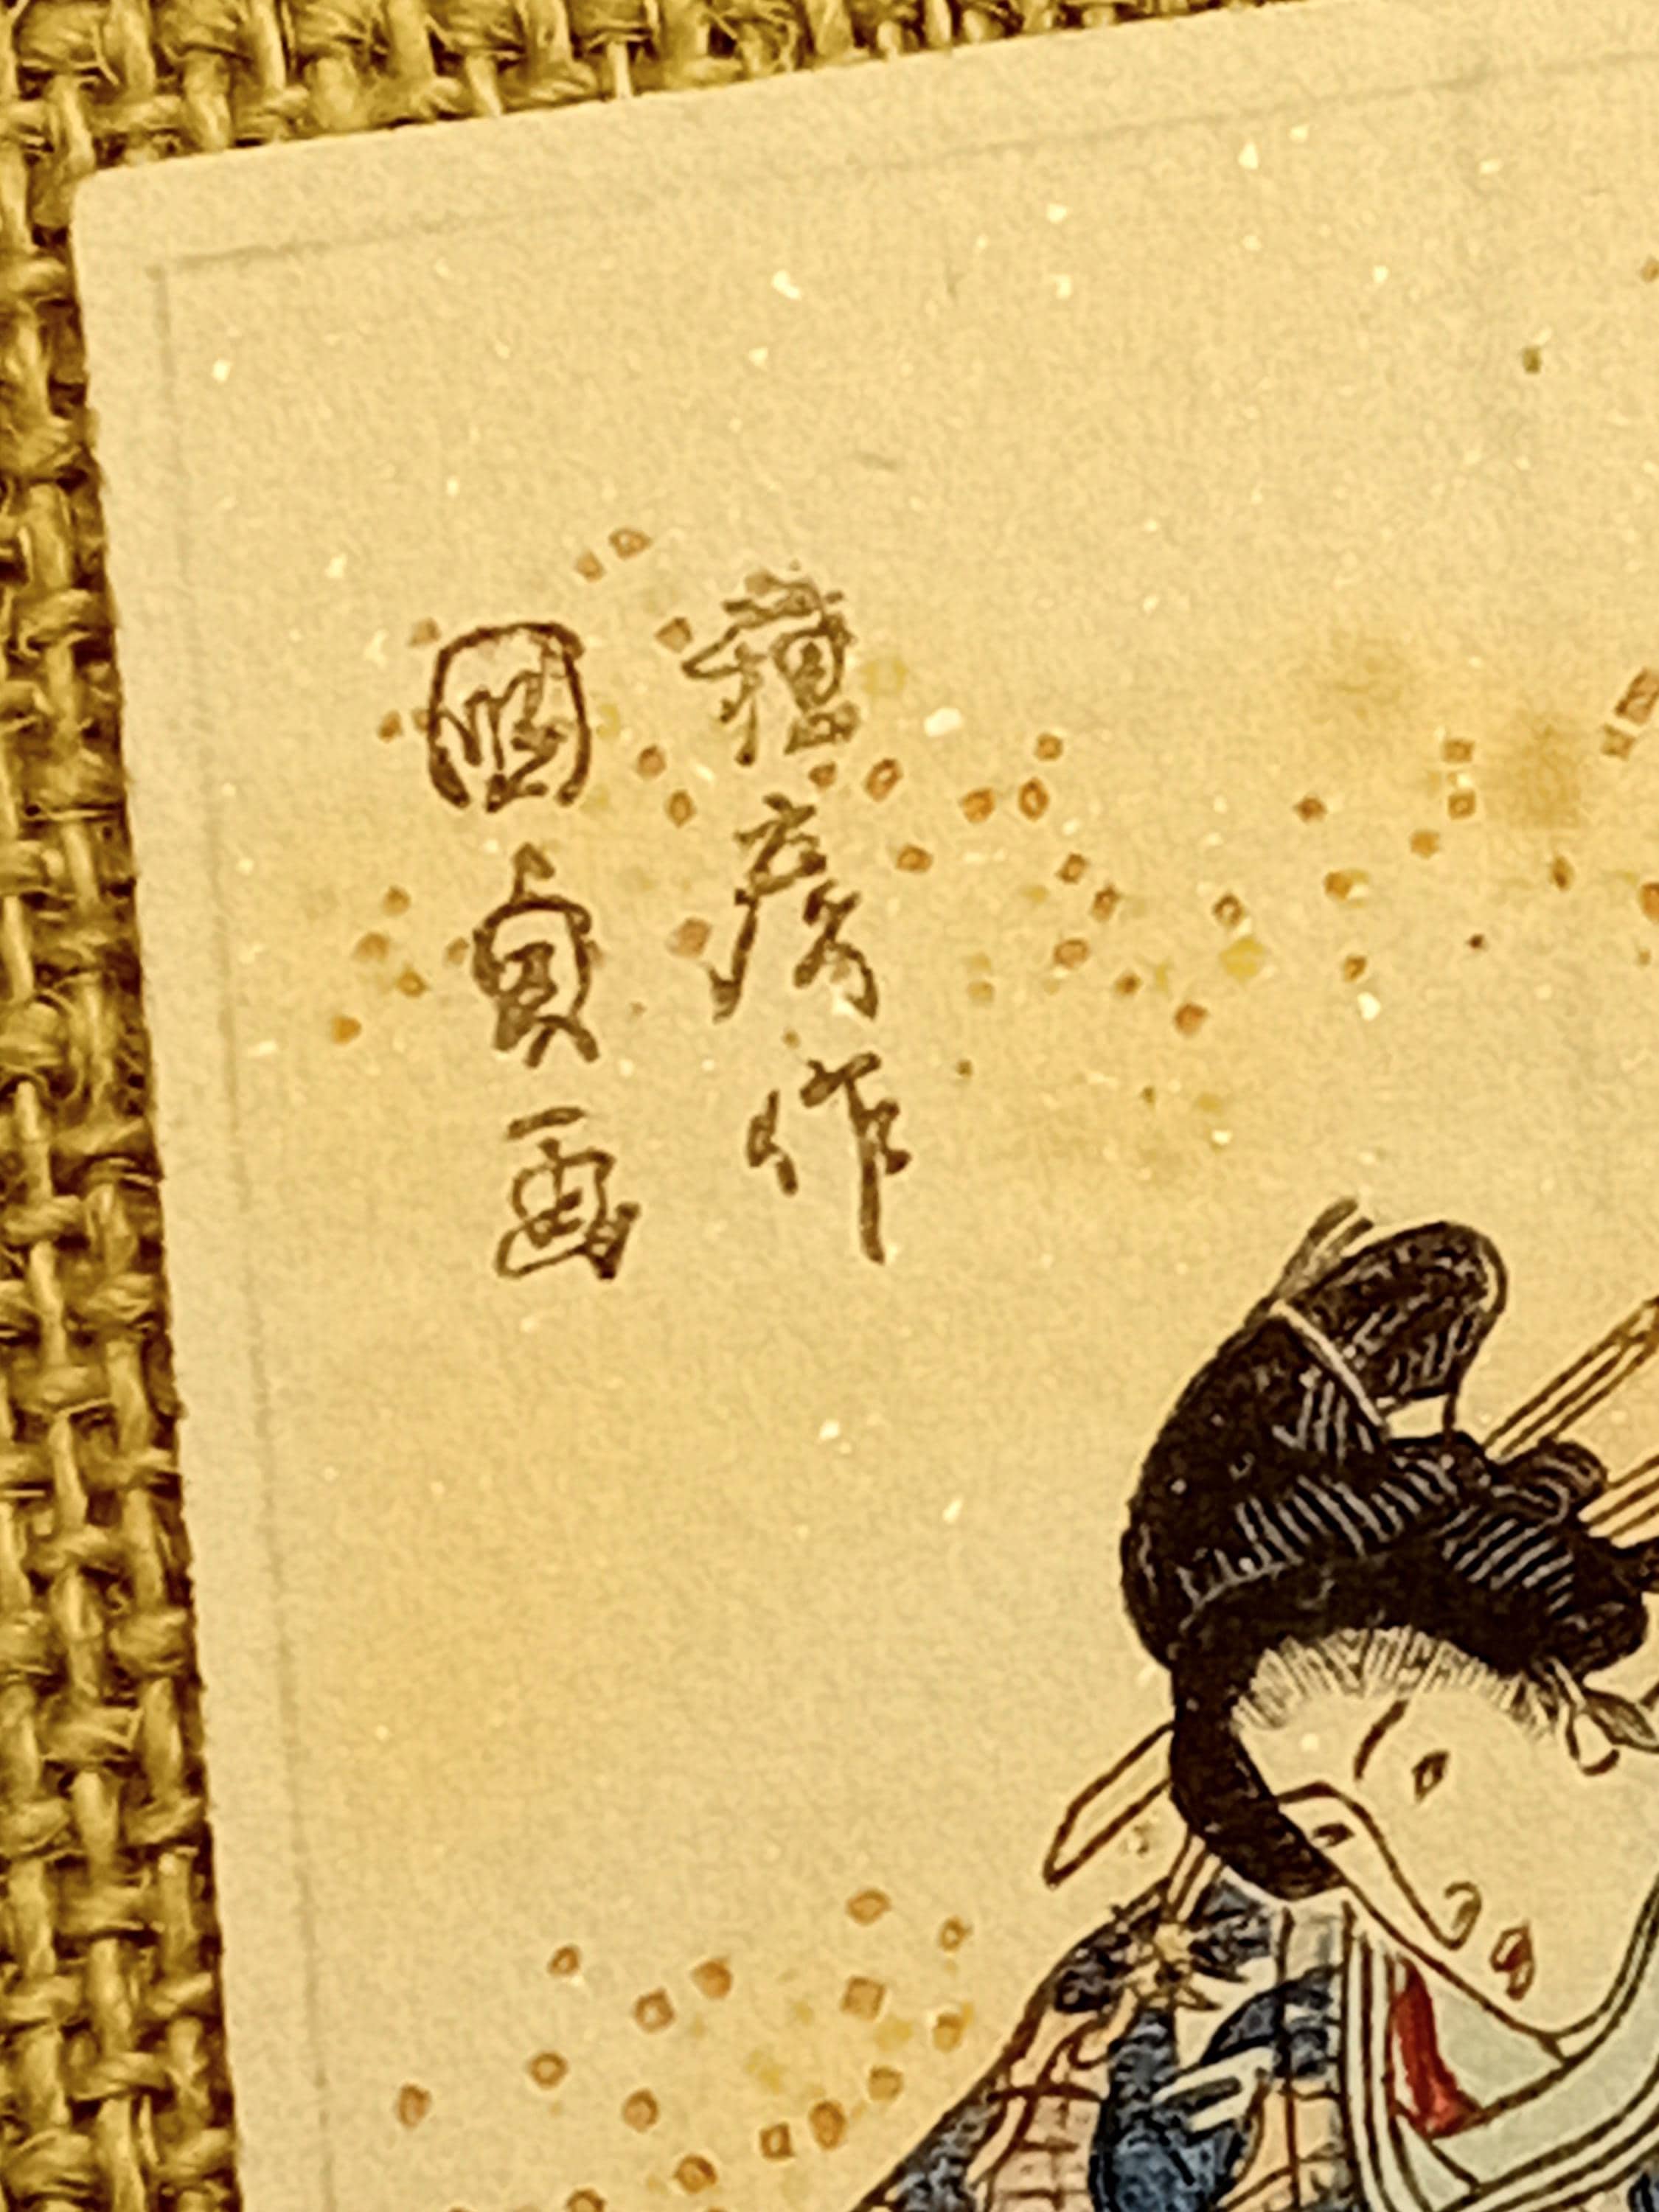 種彦作
國貞画